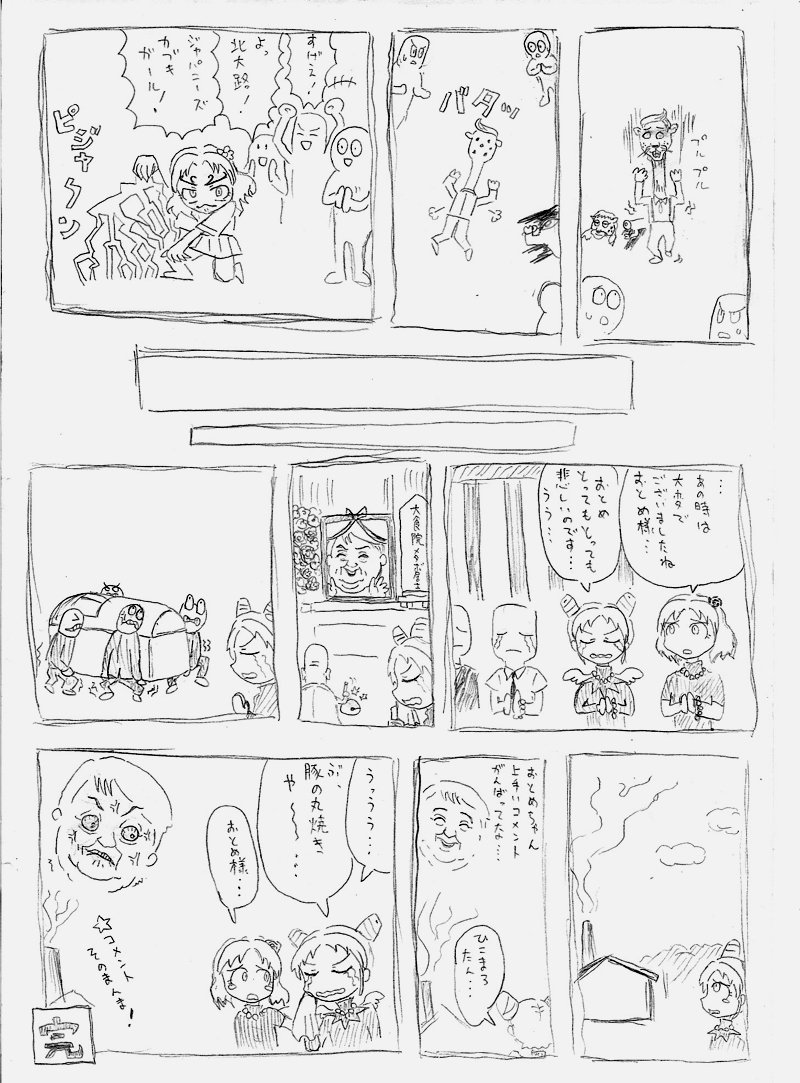 プル
プル
バタッ
すげえ!
よっ
北大路!
ジャパニーズ
カブキ
ガール!
ピジャァン
…
あの時は
大ホタで
ございましたね
おとめ様…
おとめ
とってもとっても
悲しいのです…
ううう…
大食院メタボ居士
おとめちゃん
上手いコメント
がんばってな…
ひこまろ
たん…
うっうう…
ぶ、
豚の丸焼き
や〜〜…
おとめ様…
☆コメント
そのまんま!
完